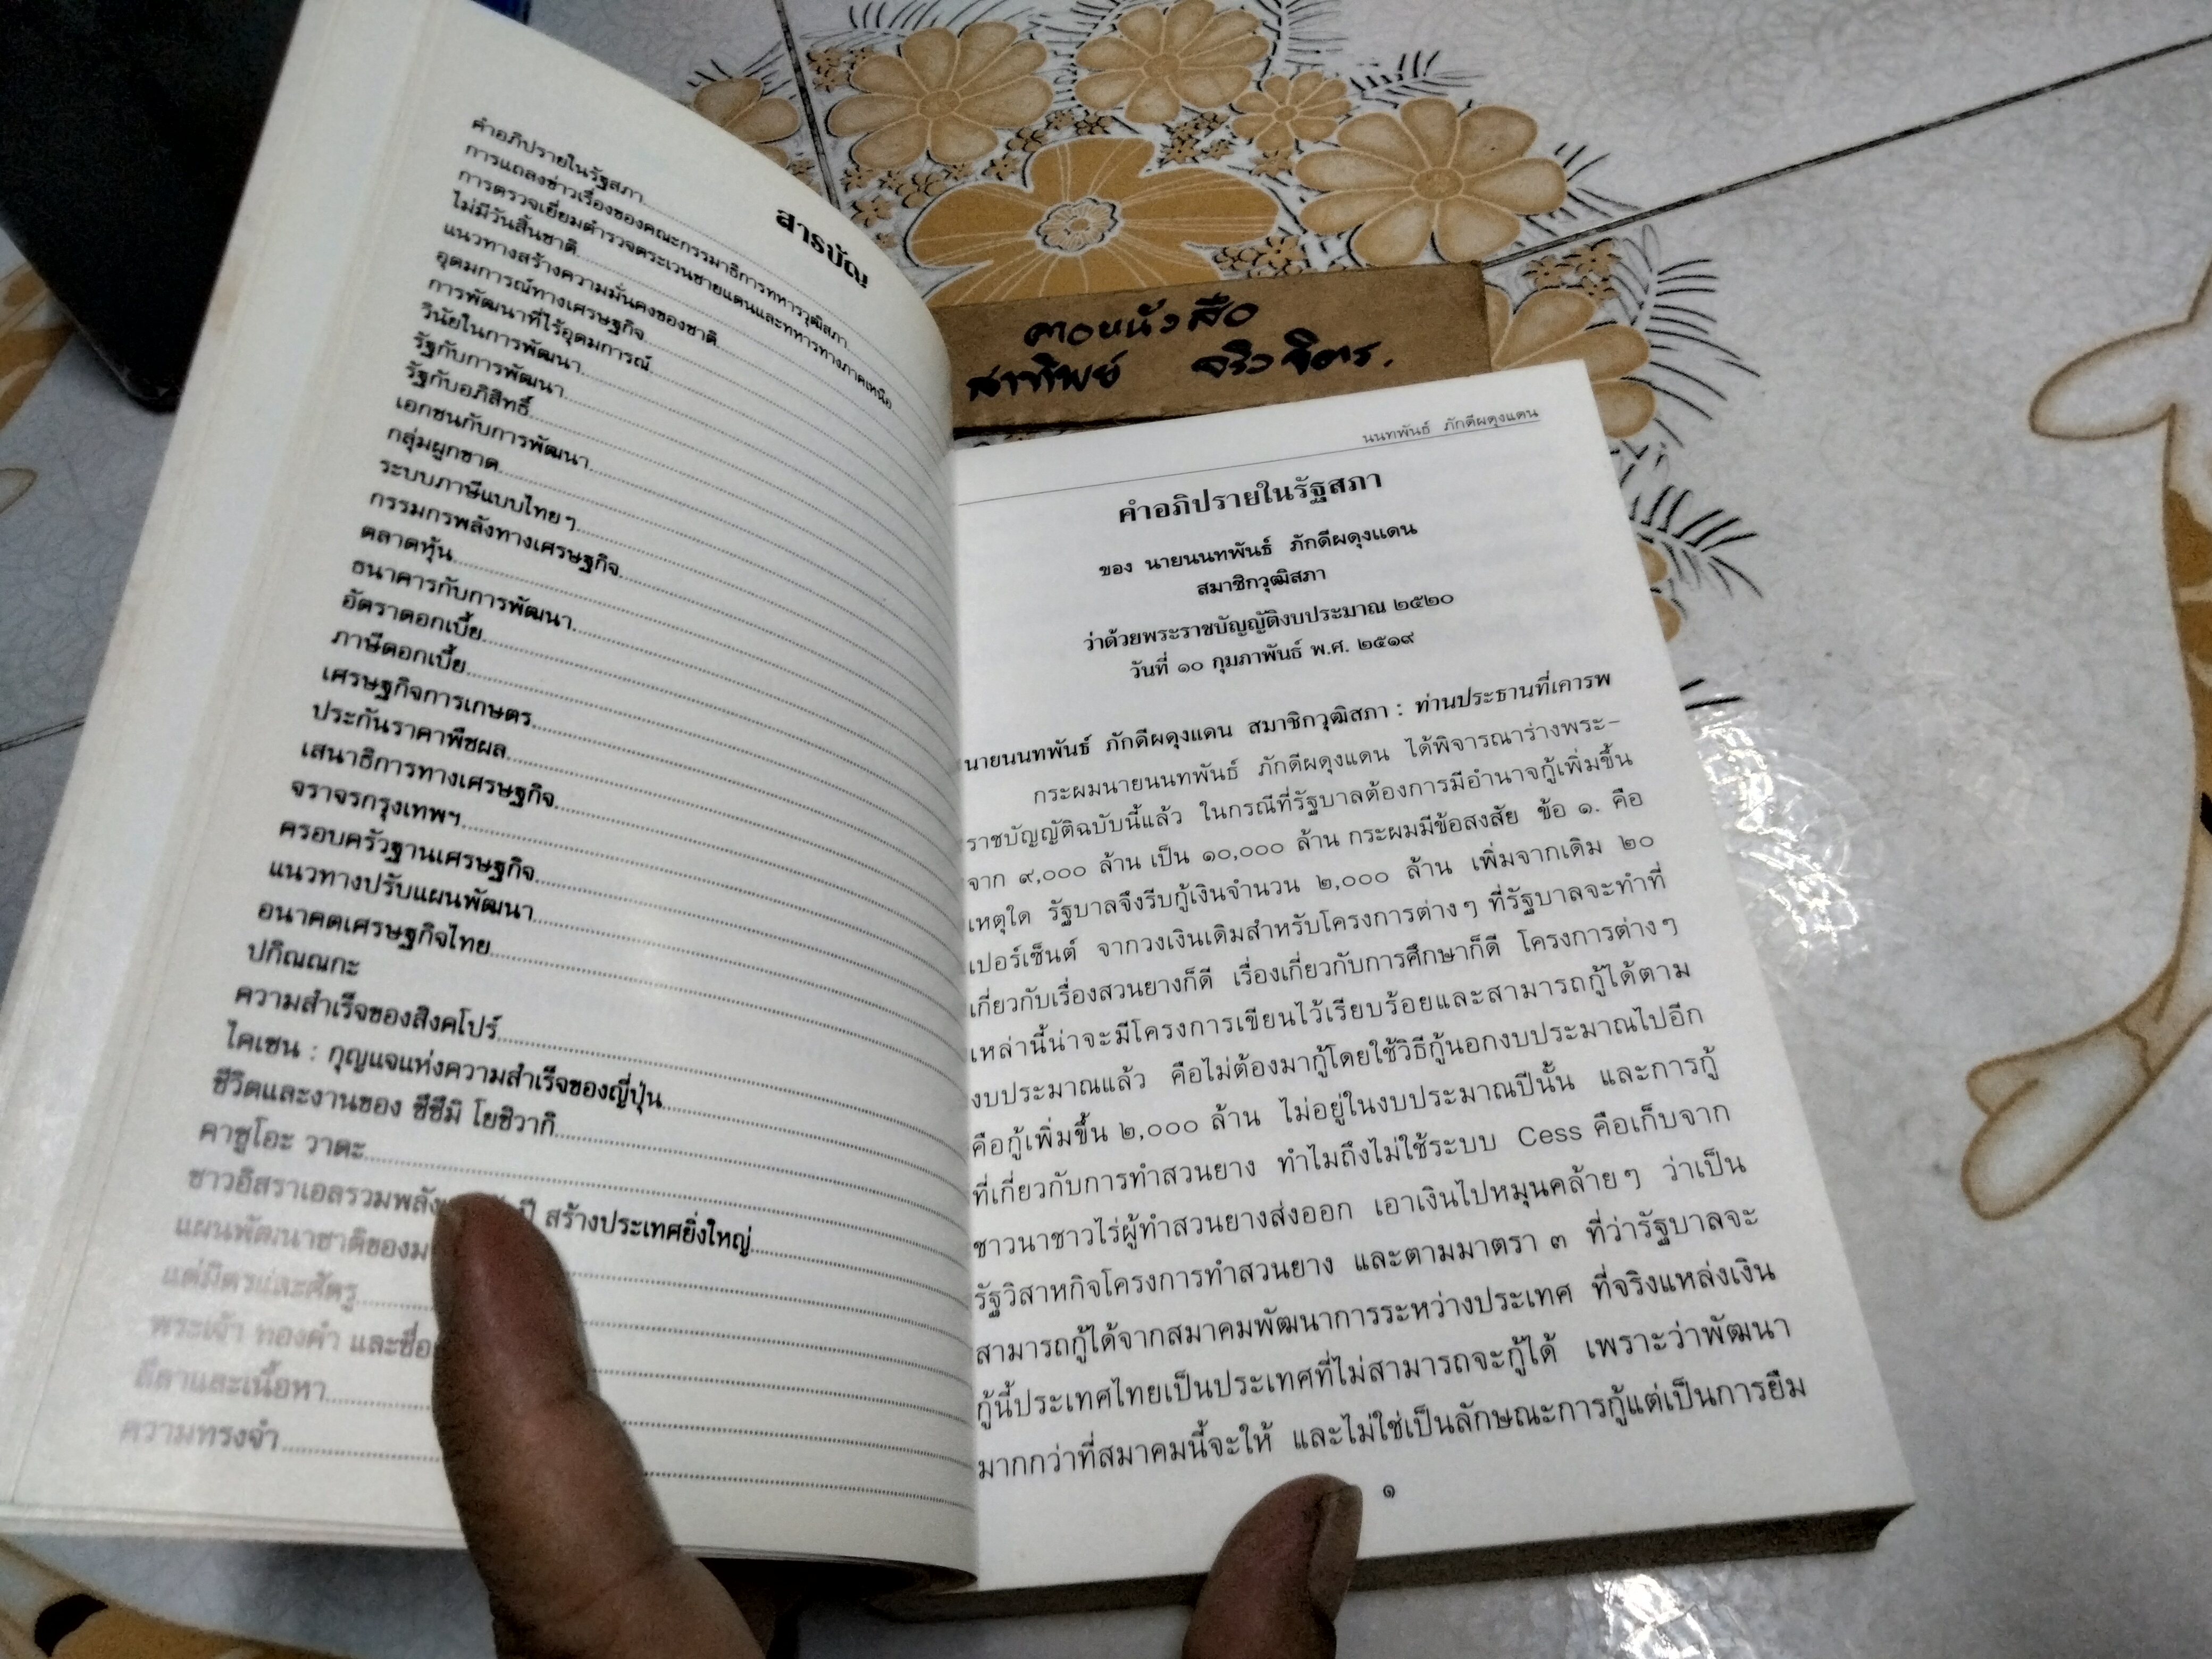 สารบัญ
คำอภิปรายในรัฐสภา
การแถลงข่าวเรื่องของคณะกรรมาธิการทหารวุฒิสภา
การตรวจเยี่ยมตำรวจตระเวนชายแดนและทหารทางภาคเหนือ
ไม่มีวันสิ้นชาติ
แนวทางสร้างความมั่นคงของชาติ
อุดมการณ์ทางเศรษฐกิจ
การพัฒนาที่ไร้อุดมการณ์
วินัยในการพัฒนา
รัฐกับการพัฒนา
รัฐกับอภิสิทธิ์
เอกชนกับการพัฒนา
กลุ่มผูกขาด
ระบบภาษีแบบไทยๆ
กรรมกรพลังทางเศรษฐกิจ
ตลาดหุ้น
ธนาคารกับการพัฒนา
อัตราดอกเบี้ย
ภาษีดอกเบี้ย
เศรษฐกิจการเกษตร
ประกันราคาพืชผล
เสนาธิการทางเศรษฐกิจ
จราจรกรุงเทพฯ
ครอบครัวฐานเศรษฐกิจ
แนวทางปรับแผนพัฒนา
อนาคตเศรษฐกิจไทย
ปกิณณกะ
ความสำเร็จของสิงคโปร์
ไคเซน : กุญแจแห่งความสำเร็จของญี่ปุ่น
ชีวิตและงานของ ซึซึมิ โยชิวากิ
คาซูโอะ วาดะ
ชาวอิสราเอลรวมพลัง ปี สร้างประเทศยิ่งใหญ่
แผนพัฒนาชาติของ
แด่มิตรและศัตรู
พระเจ้า ทองคำ และชื่อ
ลีลาและเนื้อหา
ความทรงจำ
ถอยหนังสือ
สาทิพย์ จริงจิตร.
นนทพันธ์ ภักดีผดุงแดน
คำอภิปรายในรัฐสภา
ของ นายนนทพันธ์ ภักดีผดุงแดน
สมาชิกวุฒิสภา
ว่าด้วยพระราชบัญญัติงบประมาณ ๒๕๒๐
วันที่ ๑๐ กุมภาพันธ์ พ.ศ. ๒๕๑๙
นายนนทพันธ์ ภักดีผดุงแดน สมาชิกวุฒิสภา : ท่านประธานที่เคารพ
กระผมนายนนทพันธ์ ภักดีผดุงแดน ได้พิจารณาร่างพระ–
ราชบัญญัติฉบับนี้แล้ว ในกรณีที่รัฐบาลต้องการมีอำนาจกู้เพิ่มขึ้น
จาก ๙,๐๐๐ ล้าน เป็น ๑๐,๐๐๐ ล้าน กระผมมีข้อสงสัย ข้อ ๑. คือ
เหตุใด รัฐบาลจึงรีบกู้เงินจำนวน ๒,๐๐๐ ล้าน เพิ่มจากเดิม ๒๐
เปอร์เซ็นต์ จากวงเงินเดิมสำหรับโครงการต่างๆ ที่รัฐบาลจะทำที่
เกี่ยวกับเรื่องสวนยางก็ดี เรื่องเกี่ยวกับการศึกษาก็ดี โครงการต่างๆ
เหล่านี้น่าจะมีโครงการเขียนไว้เรียบร้อยและสามารถกู้ได้ตาม
งบประมาณแล้ว คือไม่ต้องมากู้โดยใช้วิธีกู้นอกงบประมาณไปอีก
คือกู้เพิ่มขึ้น ๒,๐๐๐ ล้าน ไม่อยู่ในงบประมาณปีนั้น และการกู้
ที่เกี่ยวกับการทำสวนยาง ทำไมถึงไม่ใช้ระบบ Cess คือเก็บจาก
ชาวนาชาวไร่ผู้ทำสวนยางส่งออก เอาเงินไปหมุนคล้ายๆ ว่าเป็น
รัฐวิสาหกิจโครงการทำสวนยาง และตามมาตรา ๓ ที่ว่ารัฐบาลจะ
สามารถกู้ได้จากสมาคมพัฒนาการระหว่างประเทศ ที่จริงแหล่งเงิน
กู้นี้ประเทศไทยเป็นประเทศที่ไม่สามารถจะกู้ได้ เพราะว่าพัฒนา
มากกว่าที่สมาคมนี้จะให้ และไม่ใช่เป็นลักษณะการกู้แต่เป็นการยืม
๑